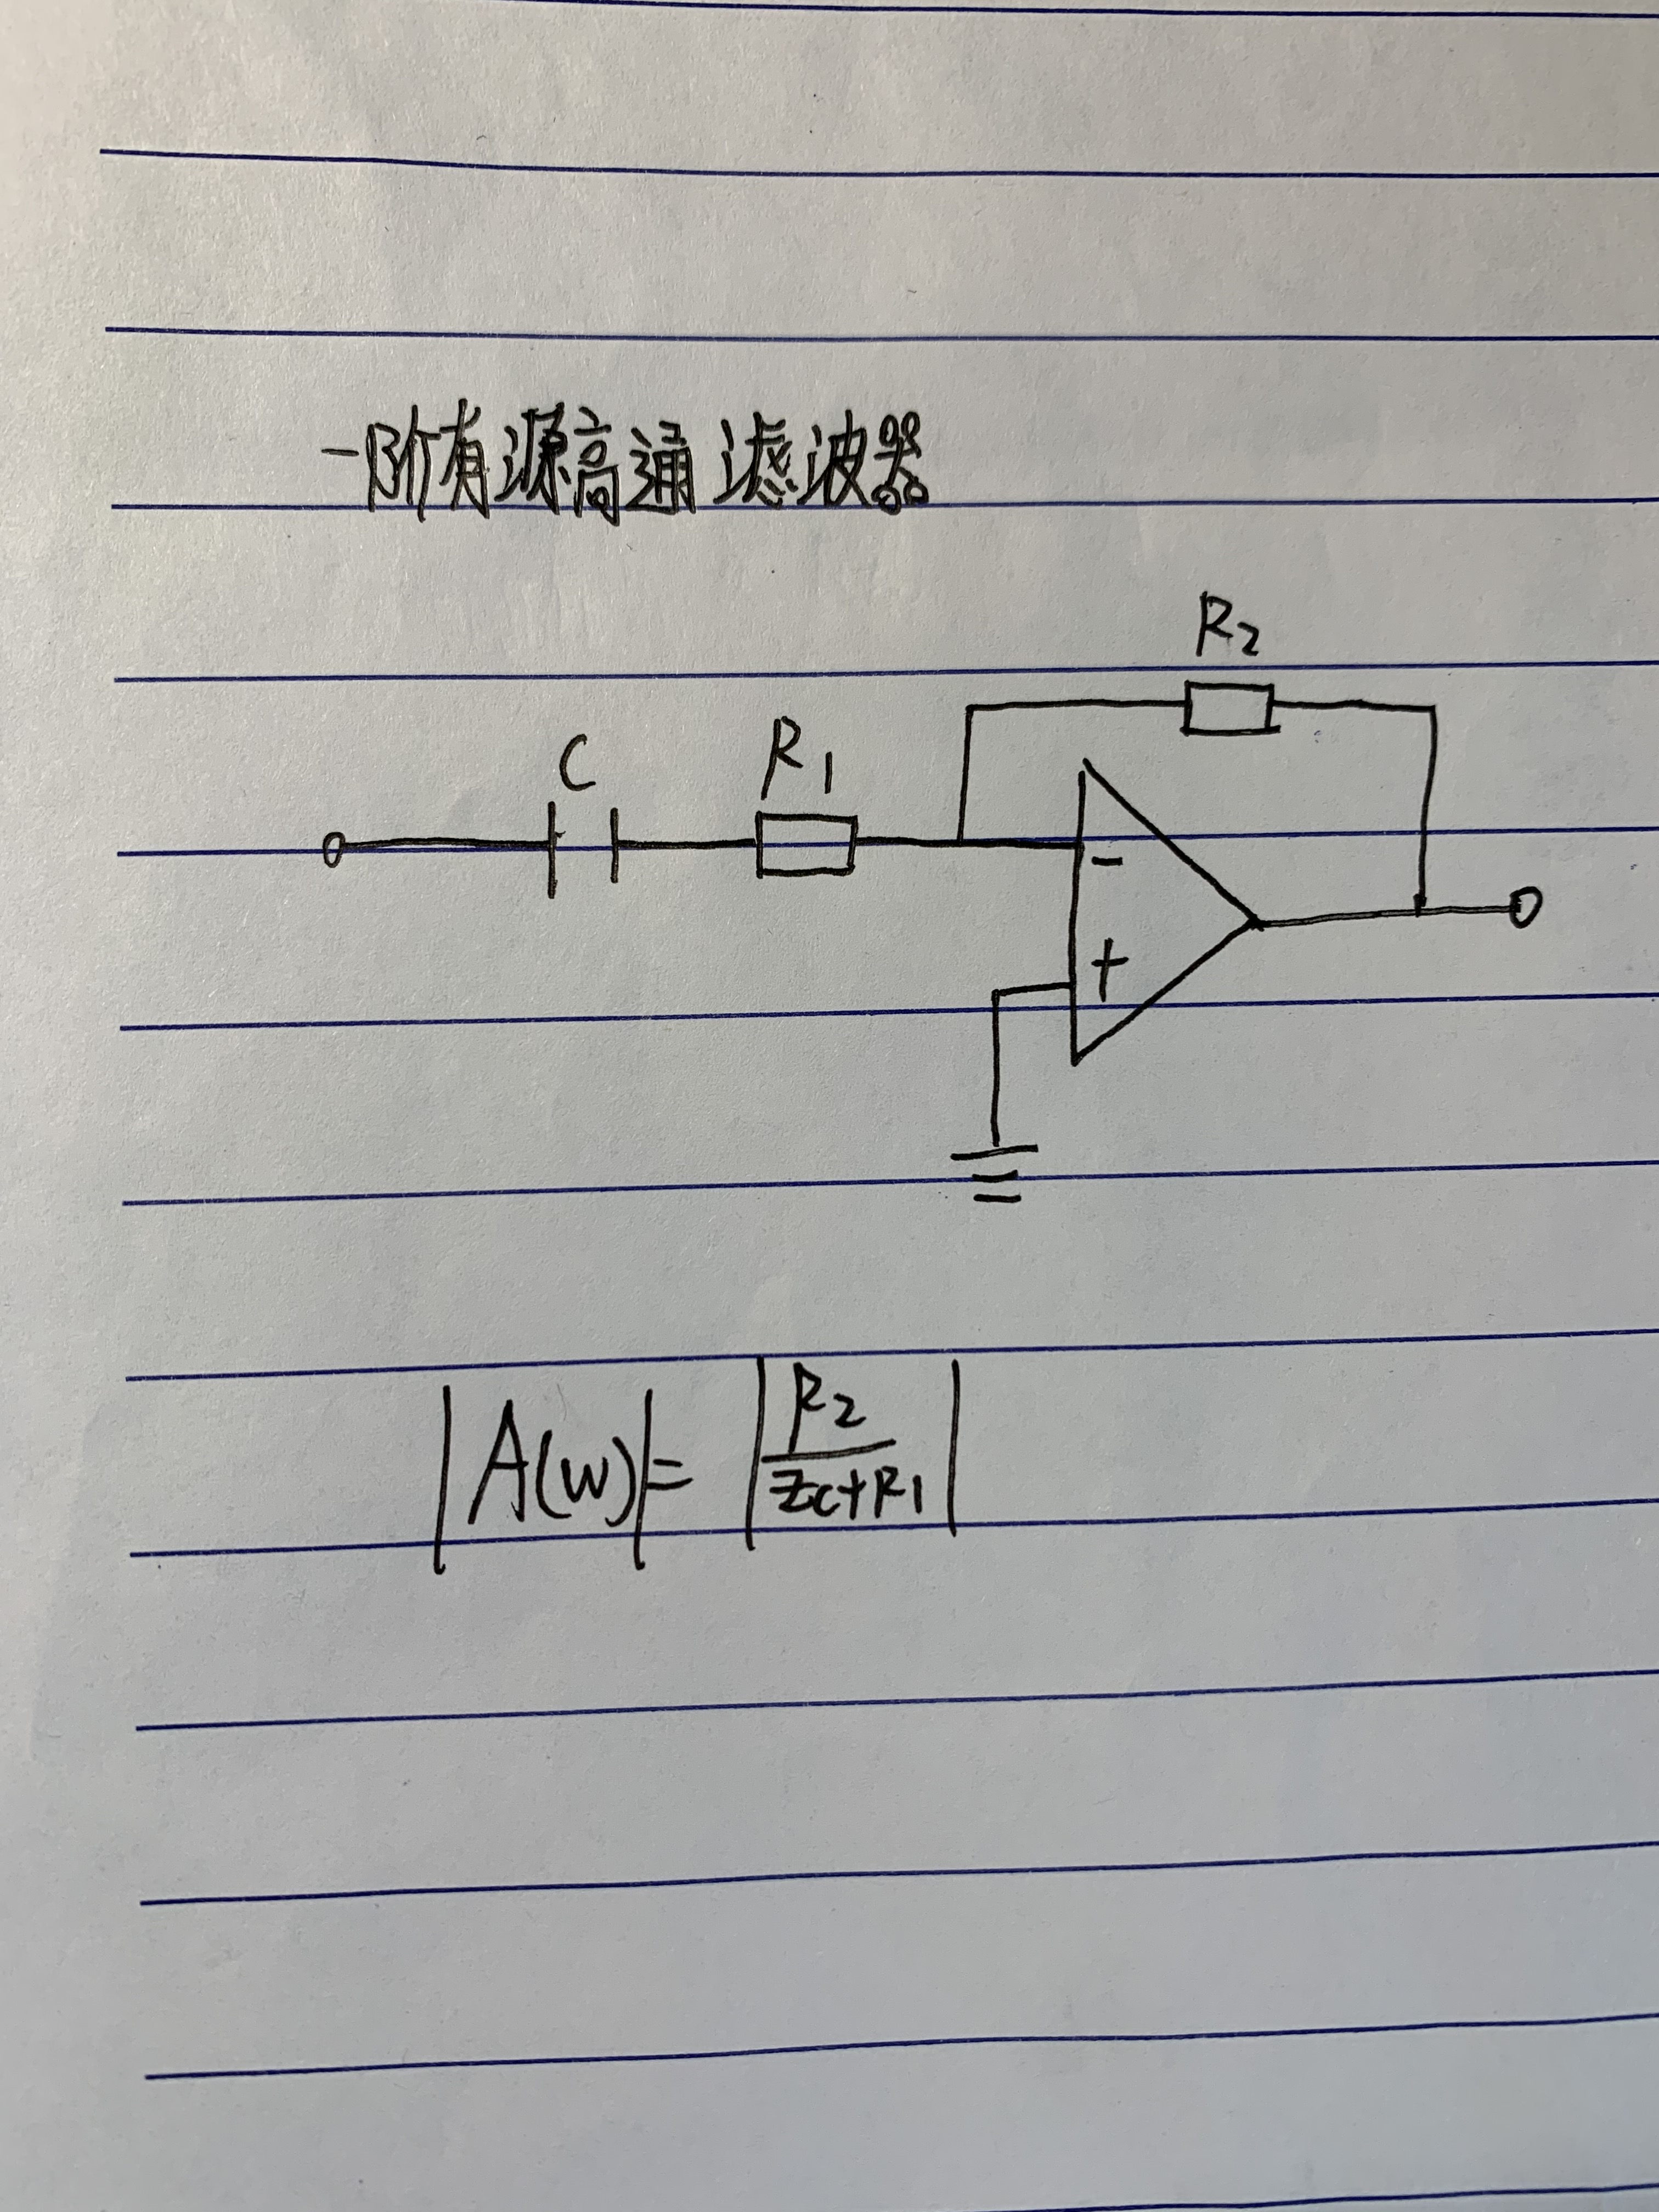 一阶有源高通滤波器
R₂
C R₁
-
+
|A(w)| = |R₂/(Zc+R₁)|